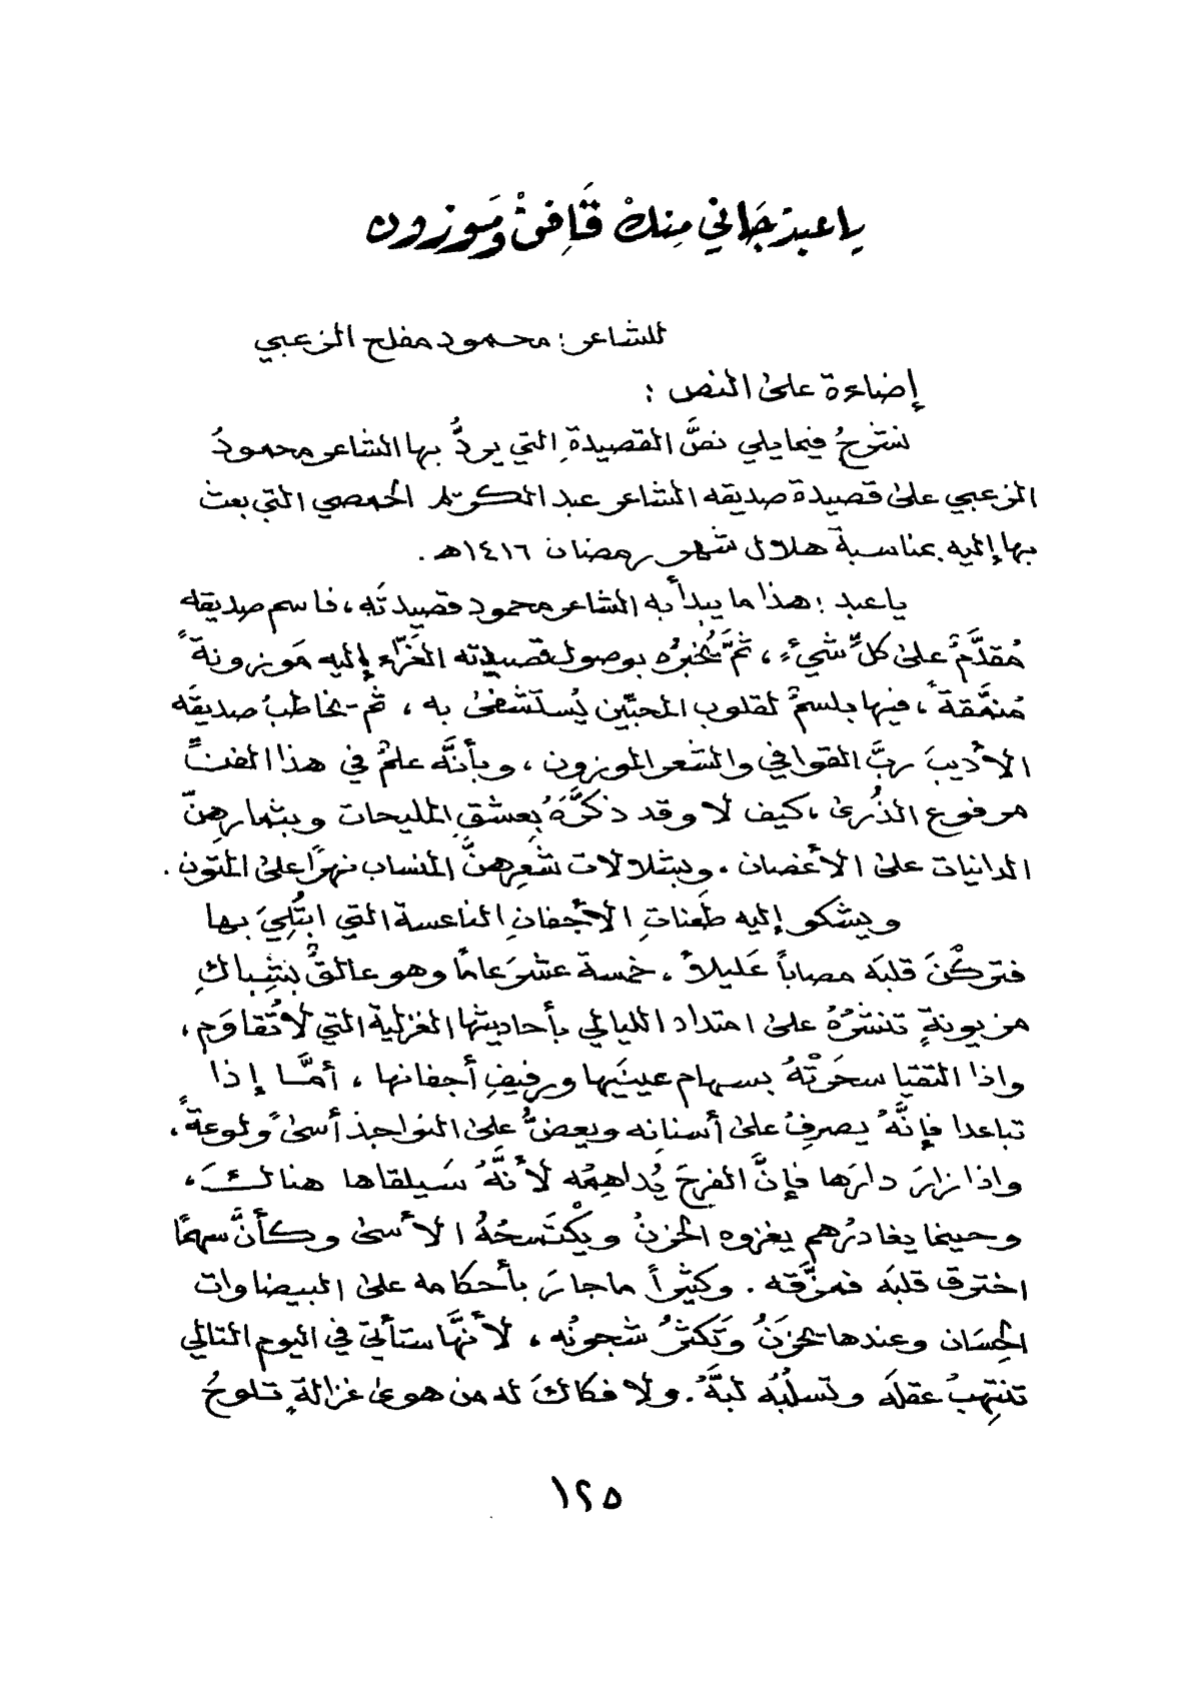 يا عبد جَاني مِنك قَافٍ وْمَوزون
للشاعر: محمود مفلح الزعبي
إضاءة على النص :
نشرحُ فيما يلي نصَّ القصيدةِ التي يردُّ بها الشاعر محمودُ
الزعبي على قصيدة صديقه الشاعر عبد الكريم الحمصي التي بعث
بها إليه بمناسبة هلال شهر رمضان ١٤١٦هـ .
يا عبد : هذا ما يبدأ به الشاعر محمود قصيدتَه ، فاسم صديقه
مُقدَّمٌ على كلِّ شيءٍ ، ثمَّ يُخبرُه بوصول قصيدته الغَرَّاء إليه مَوزونةً
مُنمَّقةً ، فيها بلسمٌ لقلوب المحبّين يُستَشفى به ، ثم يخاطبُ صديقَه
الأديبَ ربَّ القوافي والشعر الموزون ، وبأنَّه علمٌ في هذا الفنِّ
مرفوع الذُرى ، كيف لا وقد ذكَّرَهُ بِعشقِ المليحات وبثمارهِنّ
الدانيات على الأغصان . وبشلالات شعرِهنَّ المنساب نهرًا على المتون .
ويشكو إليه طَعناتِ الأجفانِ الناعسة التي ابتُلِيَ بها
فتركْنَ قلبَه مصاباً عَليلاً ، خمسة عشرَ عامًا وهو عالقٌ بِشِباكِ
مزيونةٍ تنشرُهُ على امتداد الليالي بأحاديثها الغزلية التي لا تُقاوَم ،
واذا التقتا سحَرَتْهُ بسهام عينَيها ورفيفِ أجفانها ، أمَّا إذا
تباعدا فإنَّهُ يصرِفُ على أسنانه ويعضُّ على النواجذ أسىً ولوعةً ،
واذا زارَ دارَها فإنَّ الفرحَ يُداهِمُه لأنَّهُ سَيلقاها هنالكَ ،
وحينما يغادرُهم يغزوه الحزنُ ويكْتَسحُهُ الأسى وكأنَّ سهمًا
اخترق قلبَه فمزَّقه . وكثيراً ماجارَ بأحكامه على البيضاوات
الحِسَان وعندها يحزَنُ وَتَكثرُ شجونُه ، لأنَّها ستأتي في اليوم التالي
تنتهِبُ عقلَه وتسلُبُه لبَّهُ . ولا فكاكَ له من هوى غزالةٍ تلوحُ
١٢٥